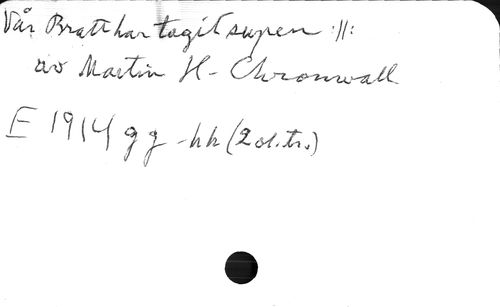 Vår Bratt har tagit supen :||:
av Martin H. Chronwall
E 1914 gg - hh (2 ol. tr.)